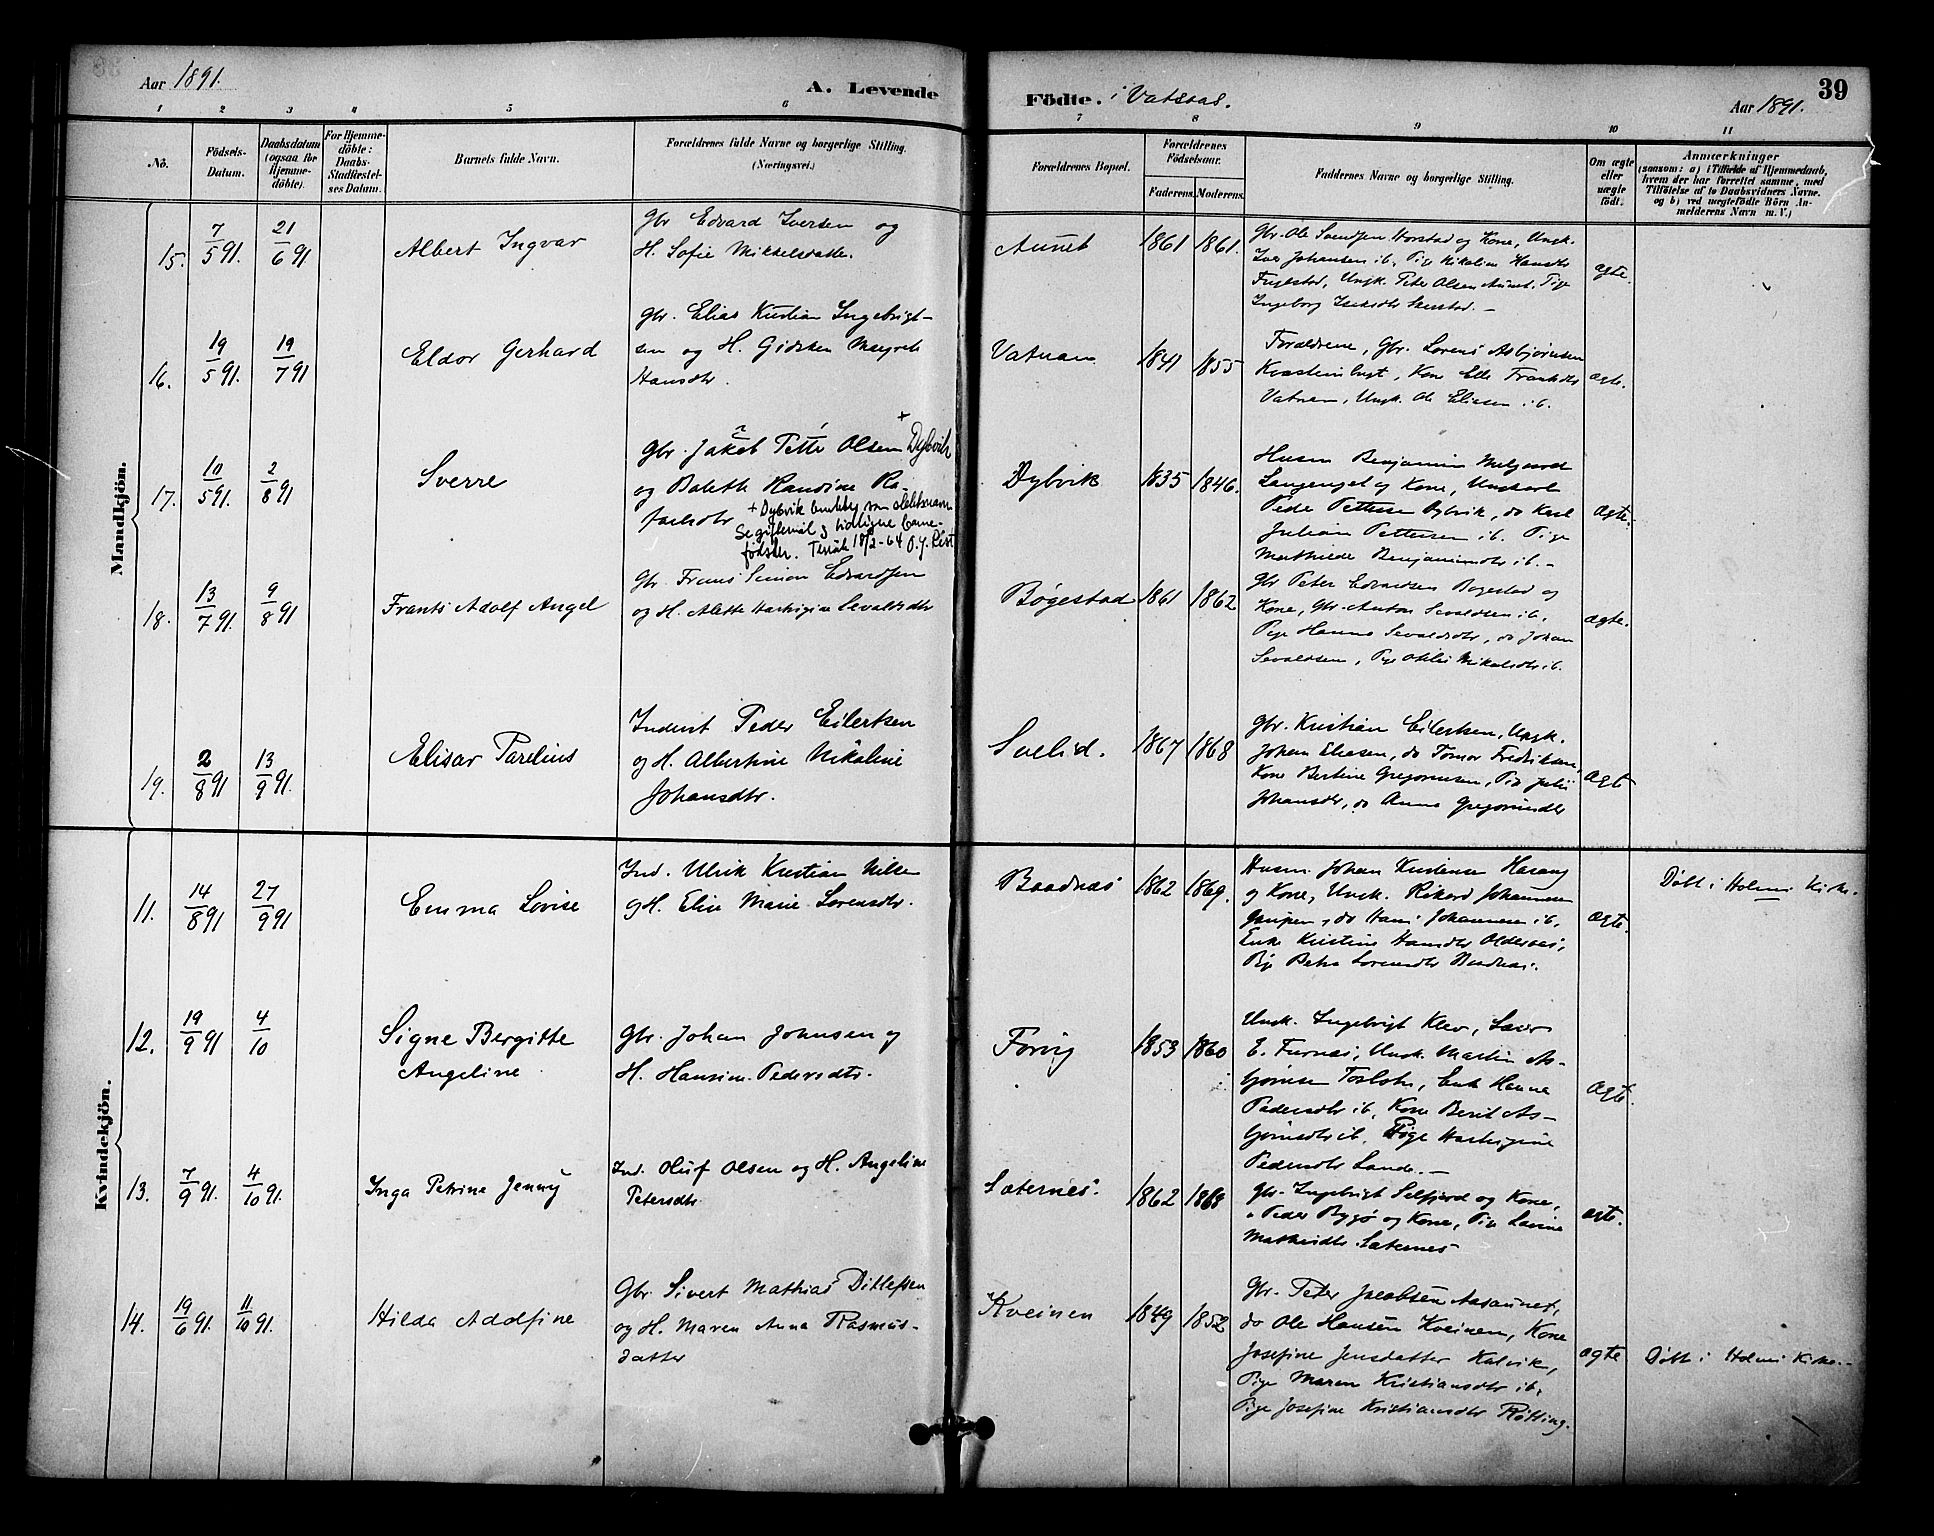 Aar 1891.
A. Levende
Födte. i Vatsaas.
Aar 1891.
39
1 2 3 4 5 6 7 8 9 10 11
No.
Födsels-
Datum.
Daabsdatum
(ogsaa for
Hjemme-
döbte).
For Hjemme-
döbte:
Daabs-
Stadfæstel-
ses Datum.
Barnets fulde Navn.
Forældrenes fulde Navne og borgerlige Stilling.
(Næringsvei.)
Forældrenes Bopæl.
Forældrenes
Födselsaar.
Faderens. Moderens.
Faddernes Navne og borgerlige Stilling.
Om ægte
eller
uægte
födt.
Anmærkninger
(saasom: a) i Tilfælde af Hjemmedaab,
hvem der har forrettet samme, med
Tilföielse af to Daabsvidners Navne.
og b) ved uægtefödte Börn An-
melderens Navn m. V.)
Mandkjön.
15. 7/5 91. 21/6 91
Albert Ingvar
Gbr Edvard Iversen og
H. Sofie Mikkelsdatter.
Aunet 1861 1861.
Gbr. Ole Svendsen Horstad og Kone, Ungk.
Iver Johansen ib, Pige Nikoline Hansdtr
Fuglestad, Ungk. Peter Olsen Aunet. Pige
Ingeborg
ægte.
16. 19/5 91. 19/7 91
Eldor Gerhard
Gbr. Elias Kristian Ingebrigt-
sen og H. Gidsken Margrete
Hansdtr.
Vatnan 1841 1855
Forældrene, Gbr. Lorens Asbjørnsen
Kone Elle
Vatnen, Ungk. Ole Eliesen ib.
ægte.
17. 10/5 91. 2/8 91
Sverre
Gbr. Jakob Petter Olsen + Dybvik
og Bolette Randine Ra-
faelsdtr
+ Dybvik som slektsnavn
Se giftemål og tidligere barne-
fødsler. Terråk 18/2-64 O.J.
Dybvik 1835 1846.
Husm Benjamin
Langenget og Kone, Ungkarl
Peder Pettersen Dybvik, do Karl
Julian Pettersen ib. Pige
Mathilde Benjaminsdtr ib.-
ægte.
18. 13/7 91. 9/8 91
Frants Adolf Angel
Gbr Frans Simon Edvardsen
og H. Alette Hartvigine Sevaldsdtr
Bøgestad 1861 1862
Gbr Peter Edvardsen Bøgestad og
Kone, Gbr. Anton Sevaldsen ib,
Pige Hanna Sevaldsdtr, do Johan
Sevaldsen, Pige Mikalsdtr ib.
ægte.
19. 2/8 91 13/9 91.
Elisar Parelius
Inderst Peder Eilertsen
og H. Albertine Nikoline
Johansdtr.
Svelid. 1867 1868
Gbr. Kristian Eilertsen, Ungk.
Johan Eliesen, do Tomas Fredriksen,
Kone Bertine Gregoriusen, Pige Julie
Johansdtr, do Anna Gregoriusdtr
ægte
Kvindekjön.
11. 14/8 91 27/9 91
Emma Lovise
Ind. Ulrik Kristian Nilsen
og H. Elise Marie Lorensdtr.
Baadnæs 1862 1869.
Husm. Johan Kristensen Harang
og Kone, Ungk. Rikard Johannesen
do Hans Johannesen ib,
Enke Kristine Hansdtr Oldernes,
Pige Petra Lorensdtr Baadnæs.
ægte.
Döbt i Holm Kirke.
12. 19/9 91 4/10
Signe Bergitte
Angeline
Gbr. Johan Johnsen og
H. Hansine Pedersdtr.
Forvig 1853 1860
Ungk. Ingebrigt Klev, Lærer
E. Furnæs, Ungk. Martin As-
bjørnsen Torlote, Enke Hanna
Pedersdtr ib, Kone Berit As-
bjørnsdtr ib. Pige Hartvigine
Pedersdtr Lande.-
ægte.
13. 7/9 91. 4/10 91.
Inga Petrine Jenny
Ind. Oluf Olsen og H. Angeline
Petersdtr
Sæternes. 1862 1868
Gbr. Ingebrigt Selfjord og Kone,
" Peder Bygø og Kone, Pige Lavine
Mathisdtr. Sæternes
ægte.
14. 19/6 91. 11/10 91.
Hilda Adolfine
Gbr. Sivert Mathias Ditlefsen
og H. Maren Anna Rasmus-
datter
Kveinen 1849 1852
Gbr. Peder Jacobsen Aasaunet,
do Ole Hansen Kveinen, Kone
Josefine Jensdatter Kalvik,
Pige Maren Kristiansdtr ib.
Pige Josefine Kristiansdtr Røtting.
ægte
Döbt i Holm Kirke.-